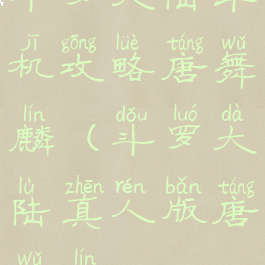 jī gōng lüè táng wǔ
机攻略唐舞
lín dǒu luó dà
麟(斗罗大
lù zhēn rén bǎn táng
陆真人版唐
wǔ lín